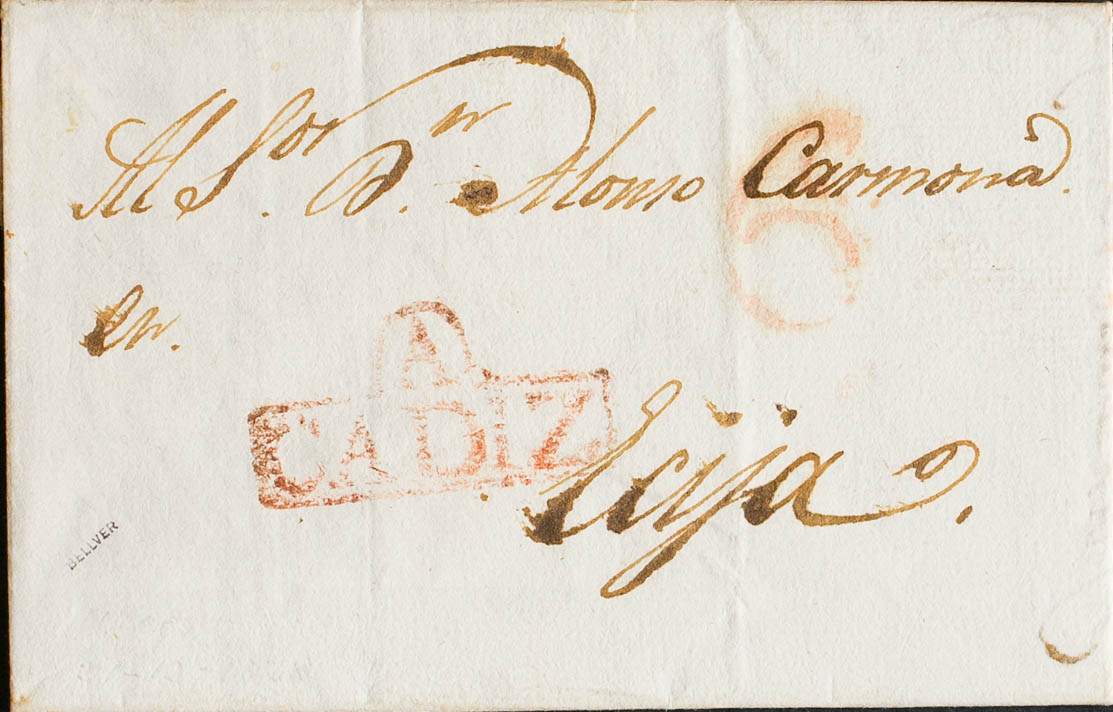 Al S.or D.n Alonso Carmona.
en.
A
CADIZ
Ecija.
6
BELLVER